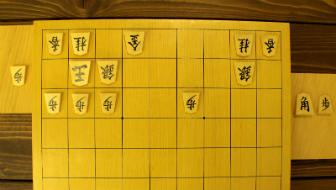 香 桂 金 桂 香
歩 王 銀 銀
歩 歩 歩 歩 角 歩